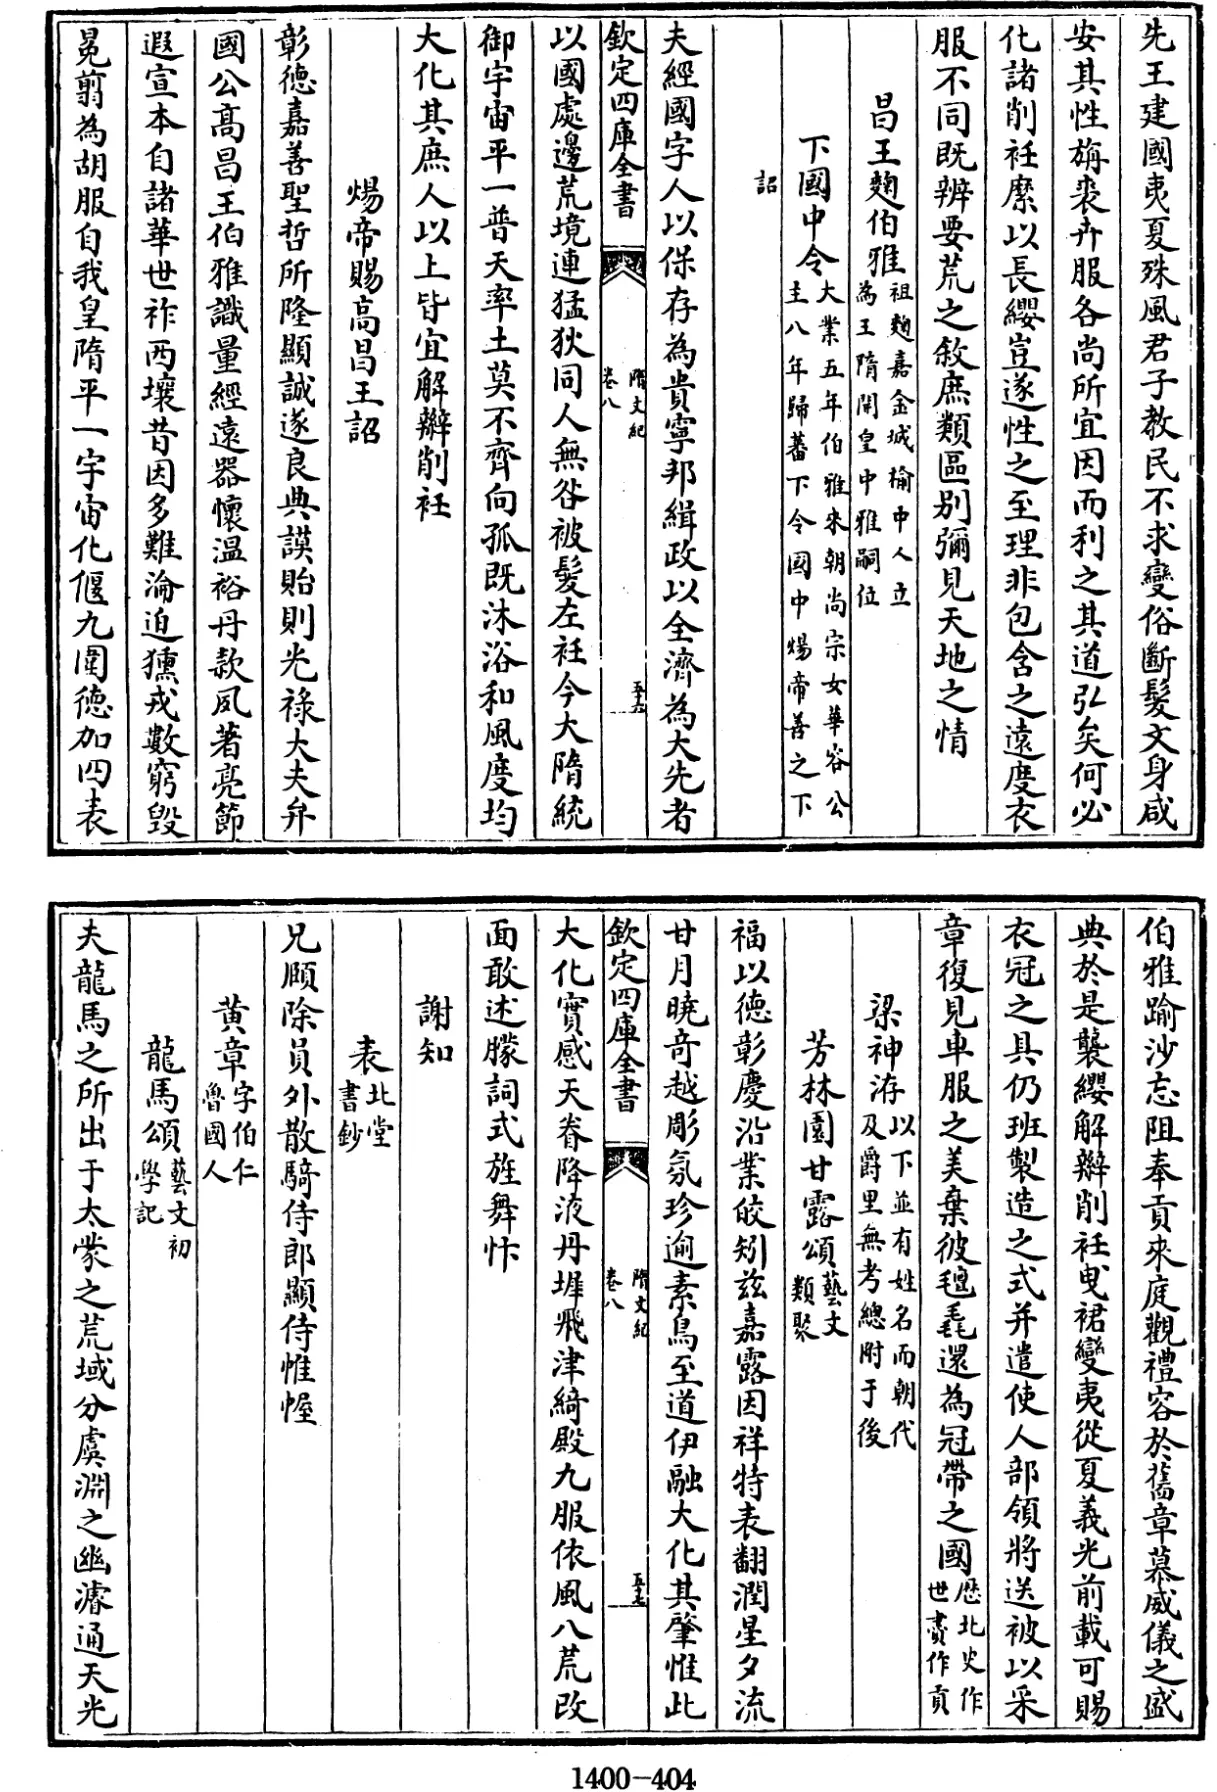 先王建國夷夏殊風君子教民不求變俗斷髮文身咸
安其性旃裘卉服各尚所宜因而利之其道弘矣何必
化諸削衽縻以長纓豈遂性之至理非包含之遠度衣
服不同既辨要荒之敘庶類區別彌見天地之情
昌王麴伯雅祖麴嘉金城榆中人立
為王隋開皇中雅嗣位
下國中令大業五年伯雅來朝尚宗女華容公
主八年歸蕃下令國中煬帝善之下
詔
夫經國字人以保存為貴寧邦緝政以全濟為大先者
欽定四庫全書
隋文紀
卷八
五十六
以國處邊荒境連猛狄同人無咎被髮左衽今大隋統
御宇宙平一普天率土莫不齊向孤既沐浴和風度均
大化其庶人以上皆宜解辮削衽
煬帝賜高昌王詔
彰德嘉善聖哲所隆顯誠遂良典謨貽則光祿大夫弁
國公高昌王伯雅識量經遠器懷溫裕丹款夙著亮節
遐宣本自諸華世祚西壤昔因多難淪迫獯戎數窮毀
冕翦為胡服自我皇隋平一宇宙化偃九圍德加四表
伯雅踰沙忘阻奉貢來庭觀禮容於舊章慕威儀之盛
典於是襲纓解辮削衽曳裾變夷從夏義光前載可賜
衣冠之具仍班製造之式并遣使人部領將送被以采
章復見車服之美棄彼氊毳還為冠帶之國歷北史作
世賮作貢
梁神洊以下並有姓名而朝代
及爵里無考總附于後
芳林園甘露頌藝文
類聚
福以德彰慶沿業皎矧兹嘉露因祥特表翻潤星夕流
甘月曉奇越彫氛珍逾素鳥至道伊融大化其肇惟此
欽定四庫全書
隋文紀
卷八
五十七
大化實感天眷降液丹墀飛津綺殿九服依風八荒改
面敢述朦詞式旌舞忭
謝知
表北堂
書鈔
兄頤除員外散騎侍郎顯侍惟幄
黄章字伯仁
魯國人
龍馬頌藝文初
學記
夫龍馬之所出于太蒙之荒域分虞淵之幽濬通天光
1400-404